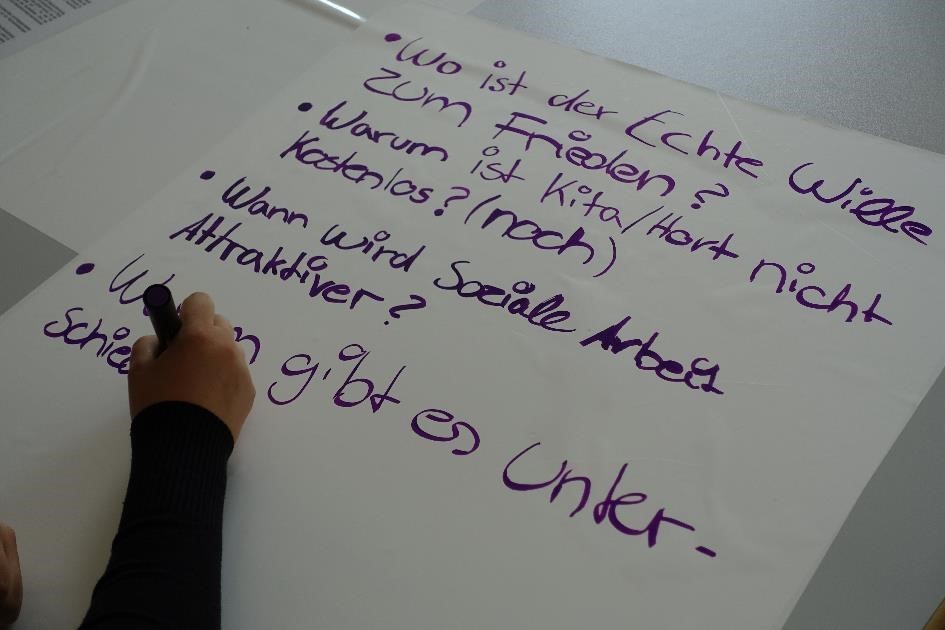 • Wo ist der Echte Wille
zum Frieden?
• Warum ist Kita/Hort nicht
Kostenlos? (noch)
• Wann wird Soziale Arbeit
Attraktiver?
• gibt es Unter-